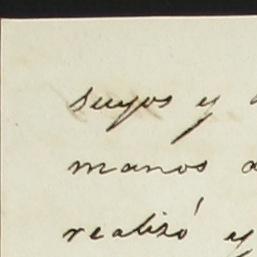 suyos y
manos
realizó y